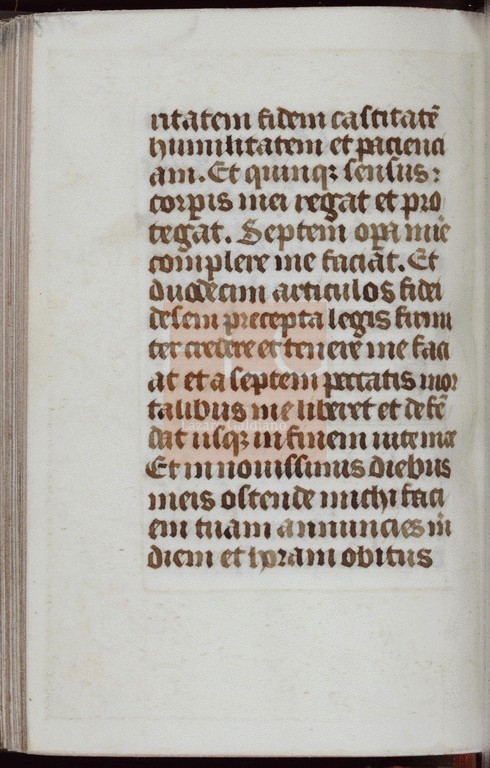 ritatem fidem castitatē
humilitatem et pacienci
am. Et quinqꝫ sensus:
corpis mei regat et pro
tegat. Septem opa mīe
complere me faciāt. Et
duodecim articulos fidei
desem precepta legis firmi
ter credere et tenere me faci
at et a septem peccatis mor
talibus me liberet et defē
dat usqꝫ in finem uite mee
Et in nouissimis diebus
meis ostende michi faci
em tuam annuncies m̄
diem et horam obitus
Lázaro Galdiano